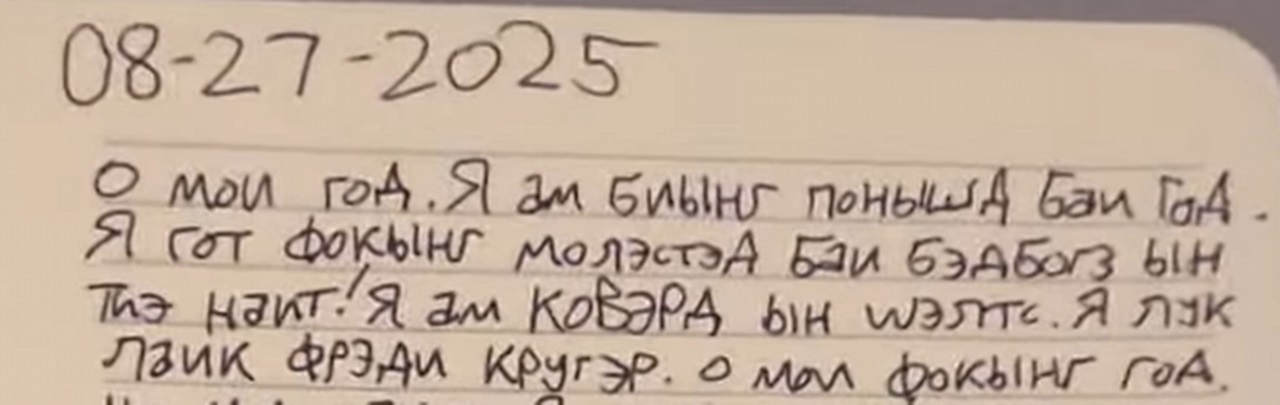 08-27-2025
О мои год. Я эм биынг понышд бэи год.
Я гот фокынг молэстэд бэи бэдбогз ын
тиэ нэит! Я эм ковэрд ын шэлтс. Я лук
лэик фрэди кругэр. о мои фокынг год.